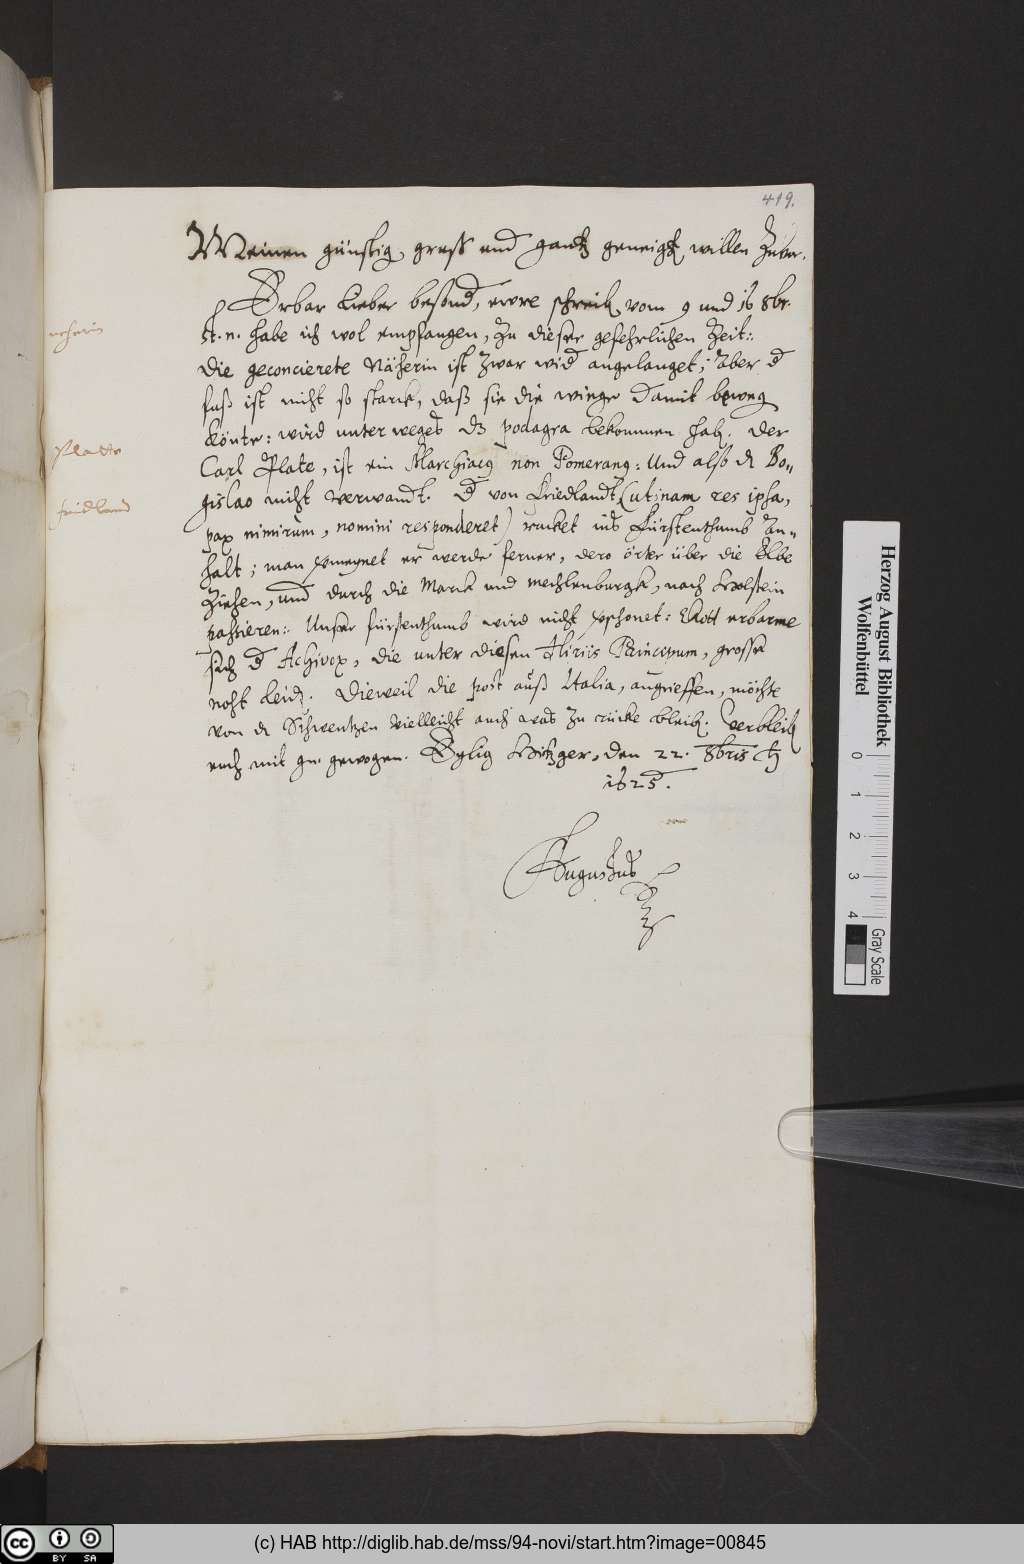 419.
Meinen günstig. gruß und gantz geneigt. willen Zuvor.
Erbar Lieber besond, ewre schreib. vom 9 und 16 8br.
St. n. habe ich wol empfangen, Zu dieser gefehrlichen Zeit:.
neherin
Die geconcierete Näherin ist zwar wid angelanget; Aber d
fuß ist nicht so starck, daß sie die winge damit beweg
könte: wird unter weges dz podagra bekommen hab. Der
Platte
Carl Plate, ist ein Marchiacg non Pomerang: Und also dem Bo-
gislao nicht verwandt. D von Friedlandt (utinam res ipsa,
fridland
pax nimirum, nomini responderet) rucket ins Fürstenthumb An-
halt; man vermeynet er werde ferner, dero örter über die Elbe
Ziehen, und durch die Marck und Mechlenburgk, nach Holstein
passieren:. Unser fürstenthumb wird nicht verschonet: Gott erbarme
sich d Achivor, die unter diesen Principum, grosse
noht leid. Dieweil die post auß Italia, angrieffen, möchte
von den Schweitzen vielleicht auch was zu rücke bleib. Verbleib
euch mit gn. gewogen. Eylig Hitzger, den 22. 8bris ♄
1625.
Augustus
(c) HAB http://diglib.hab.de/mss/94-novi/start.htm?image=00845
Herzog August Bibliothek
Wolfenbüttel
0 1 2 3 4
Gray Scale
cc BY SA